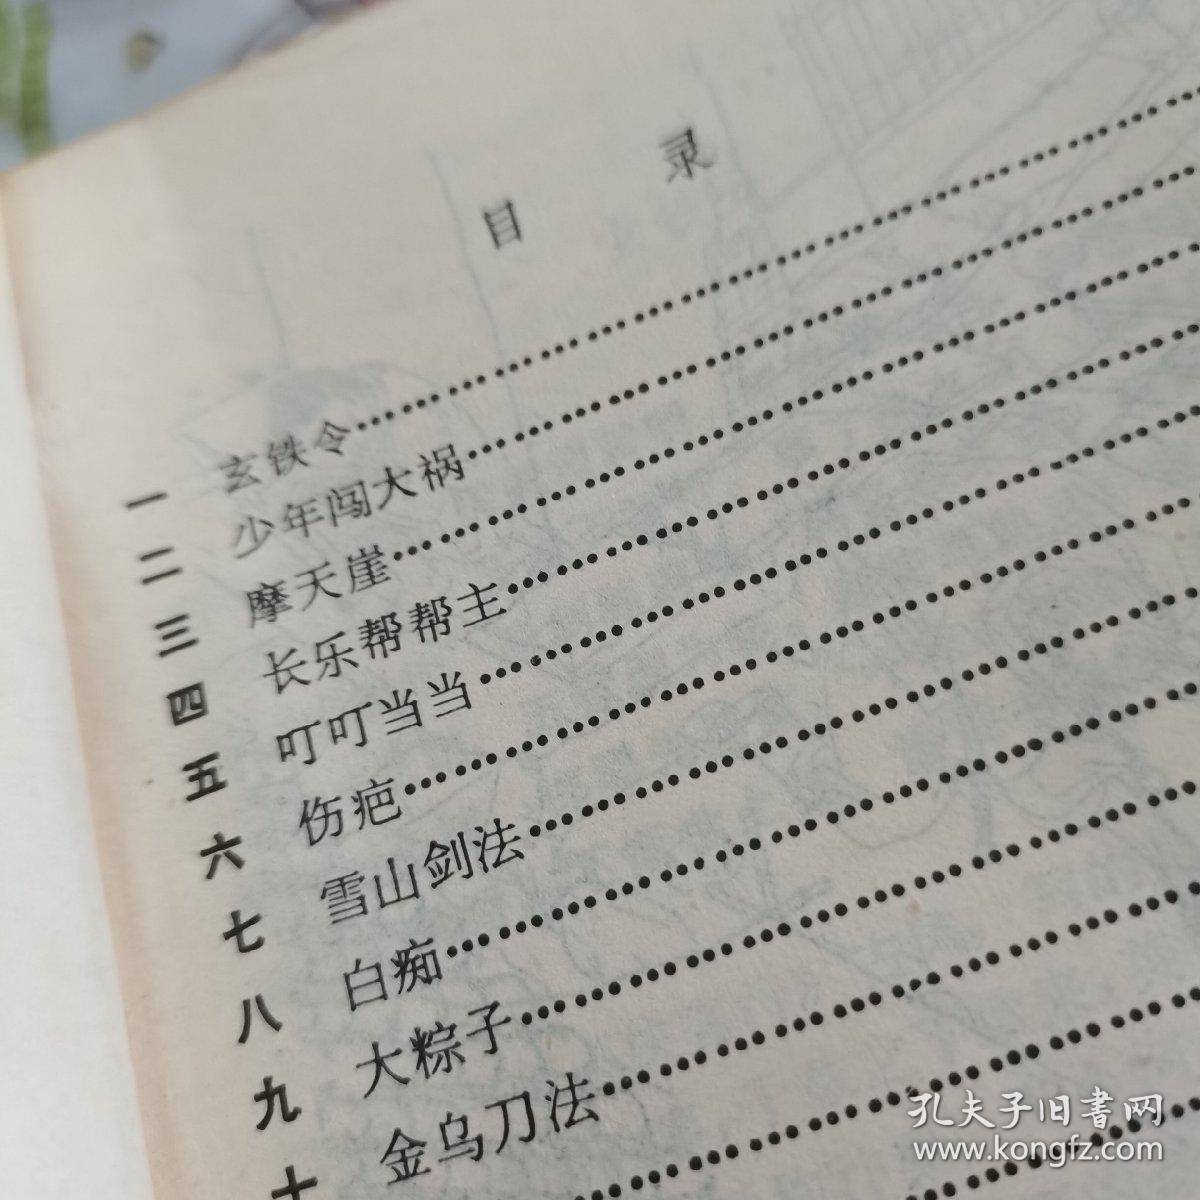 目 录
一 玄铁令
二 少年闯大祸
三 摩天崖
四 长乐帮帮主
五 叮叮当当
六 伤疤
七 雪山剑法
八 白痴
九 大粽子
十 金乌刀法
孔夫子旧書网
www.kongfz.com